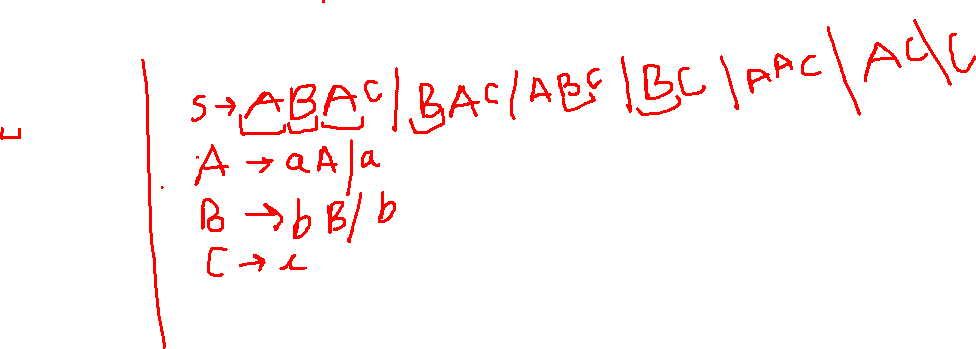 S → ABAC | BAC | ABC | BC | AAC | AC | C
A → aA | a
B → bB / b
C → c